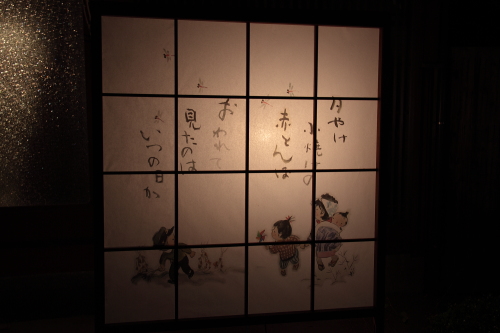 夕やけ
小焼けの
赤とんぼ
おわれて
見たのは
いつの日か